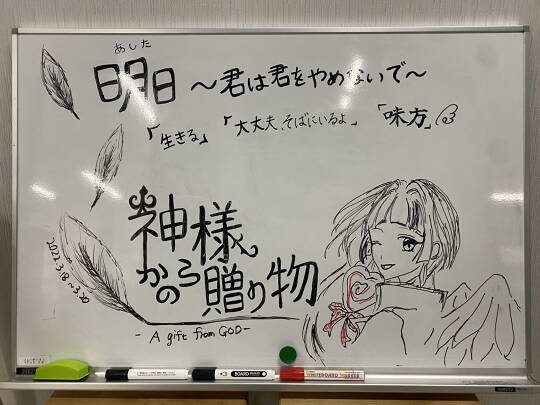 あした
明日 ~君は君をやめないで~
「生きる」 「大丈夫、そばにいるよ」 「味方」
神様
からの贈り物
- A gift from GOD -
2022.3.18~3.30
BOARD
WHITEBOARD MARKER